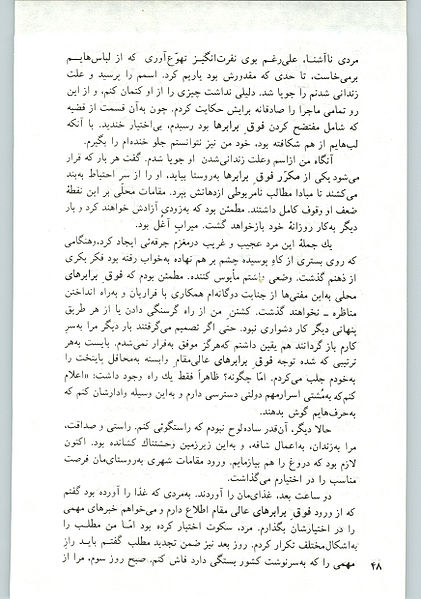 مردی ناآشنا، علی‌رغم بوی نفرت‌انگیز تهوّع‌آوری که از لباس‌هایم
برمی‌خاست، تا حدی که مقدورش بود یاریم کرد. اسمم را پرسید و علت
زندانی شدنم را جویا شد. دلیلی نداشت چیزی را از او کتمان کنم، و از این
رو تمامی ماجرا را صادقانه برایش حکایت کردم. چون به‌آن قسمت از قضیه
که شامل مفتضح کردن فوقِ برابرها بود رسیدم، بی‌اختیار خندید. با آنکه
لب‌هایم از هم شکافته بود، خود من نیز نتوانستم جلو خنده‌ام را بگیرم.
آنگاه من ازاسم وعلت زندانی‌شدن او جویا شدم. گفت هر بار که قرار
می‌شود یکی از مکرّر فوقِ برابرها به‌روستا بیاید، او را از سرِ احتیاط به‌بند
می‌کشند تا مبادا مطالب نامربوطی ازدهانش بپرد. مقامات محلّی بر این نقطهٔ
ضعف او وقوف کامل داشتند. مطمئن بود که به‌زودی آزادش خواهند کرد و بار
دیگر به‌کار روزانهٔ خود بازخواهد گشت. میرابِ آغل بود.
یك جملهٔ این مرد عجیب و غریب درمغزم جرقه‌ئی ایجاد کرد.وهنگامی
که روی بستری از کاهِ پوسیده چشم بر هم نهاده به‌خواب رفته بود فکر بکری
از ذهنم گذشت. وضعی داشتم مأیوس کننده. مطمئن بودم که فوقِ برابرهای
محلی به‌این مفتی‌ها از جنایت دوگانه‌ام همکاری با فراریان و به‌راه انداختن
مناظره ـ نخواهند گذشت. کشتنِ من از راه گرسنگی دادن یا از هر طریق
پنهانی دیگر کار دشواری نبود. حتی اگر تصمیم می‌گرفتند بار دیگر مرا به‌سرِ
کارم بازگردانند هم یقین داشتم که‌هرگز موفق به‌فرار نمی‌شدم. بایست به‌هر
ترتیبی که شده توجه فوقِ برابرهای عالی‌مقامِ وابسته به‌محافل پایتخت را
به‌خودم جلب می‌کردم. امّا چگونه؟ ظاهراً فقط یك راه وجود داشت: «اعلام
کنم‌که به‌مُشتی اسرارمهم دولتی دسترسی دارم و به‌این وسیله وادارشان کنم که
به‌حرف‌هایم گوش بدهند.
حالا دیگر، آن‌قدر ساده‌لوح نبودم که راستگوئی کنم. راستی و صداقت،
مرا به‌زندان، به‌اعمال شاقه، و به‌این زیرزمین وحشتناك کشانده بود. اکنون
لازم بود که دروغ را هم بیازمایم. ورود مقامات شهری به‌روستای‌مان فرصت
مناسب را در اختیارم می‌گذاشت.
دو ساعت بعد، غذای‌مان را آوردند. به‌مردی که غذا را آورده بود گفتم
که از ورود فوقِ برابرهای عالی مقام اطلاع دارم و می‌خواهم خبرهای مهمی
را در اختیارشان بگذارم. مرد، سکوت اختیار کرده بود امّا من مطلب را
به‌اشکال‌مختلف تکرار کردم. روز بعد نیز ضمن تجدید مطلب گفتم باید رازِ
مهمی را که به‌سرنوشت کشور بستگی دارد فاش کنم. صبح روز سوم، مرا از
۴۸